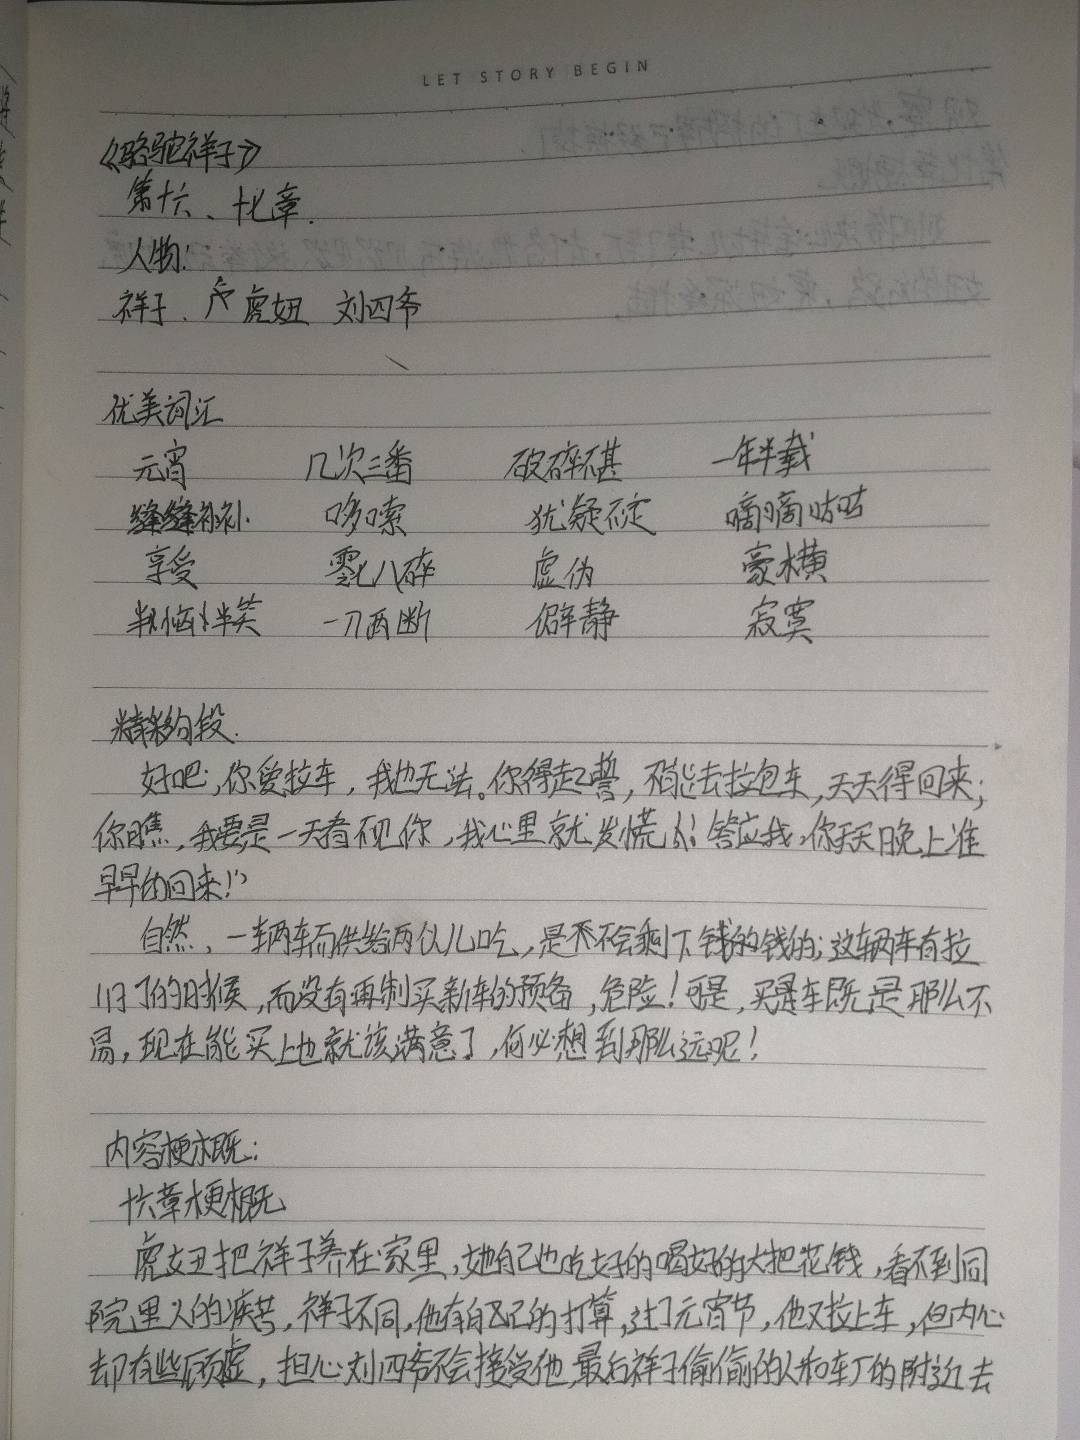 LET STORY BEGIN
《骆驼祥子》
第十六、十七章.
人物:
祥子、虎妞 刘四爷
优美词汇
元宵 几次三番 破碎不甚 一年半载
缝缝补补. 哆嗦 犹疑不定 嘀嘀咕咕
享受 零七八碎 虚伪 豪横
半恼半笑 一刀两断 僻静 寂寞
精彩句段.
好吧,你爱拉车,我也无法。你得起誓,不能去拉包车,天天得回来;
你瞧,我要是一天看不见你,我心里就发慌!答应我,你天天晚上准
早早的回来!”
自然,一辆车而供给两伙儿吃,是不会剩下钱的;这辆车有拉
旧了的时候,而没有再制买新车的预备,危险!可是,买车既是那么不
易,现在能买上也就该满意了,何必想到那么远呢!
内容梗概:
十六章梗概
虎妞把祥子养在家里,她自己也吃好的喝好的大把花钱,看不到同
院里人的疾苦,祥子不同,他有自己的打算,过了元宵节,他又拉上车,但内心
却有些顾虑,担心刘四爷不会接受他,最后祥子偷偷的从和车厂的附近去